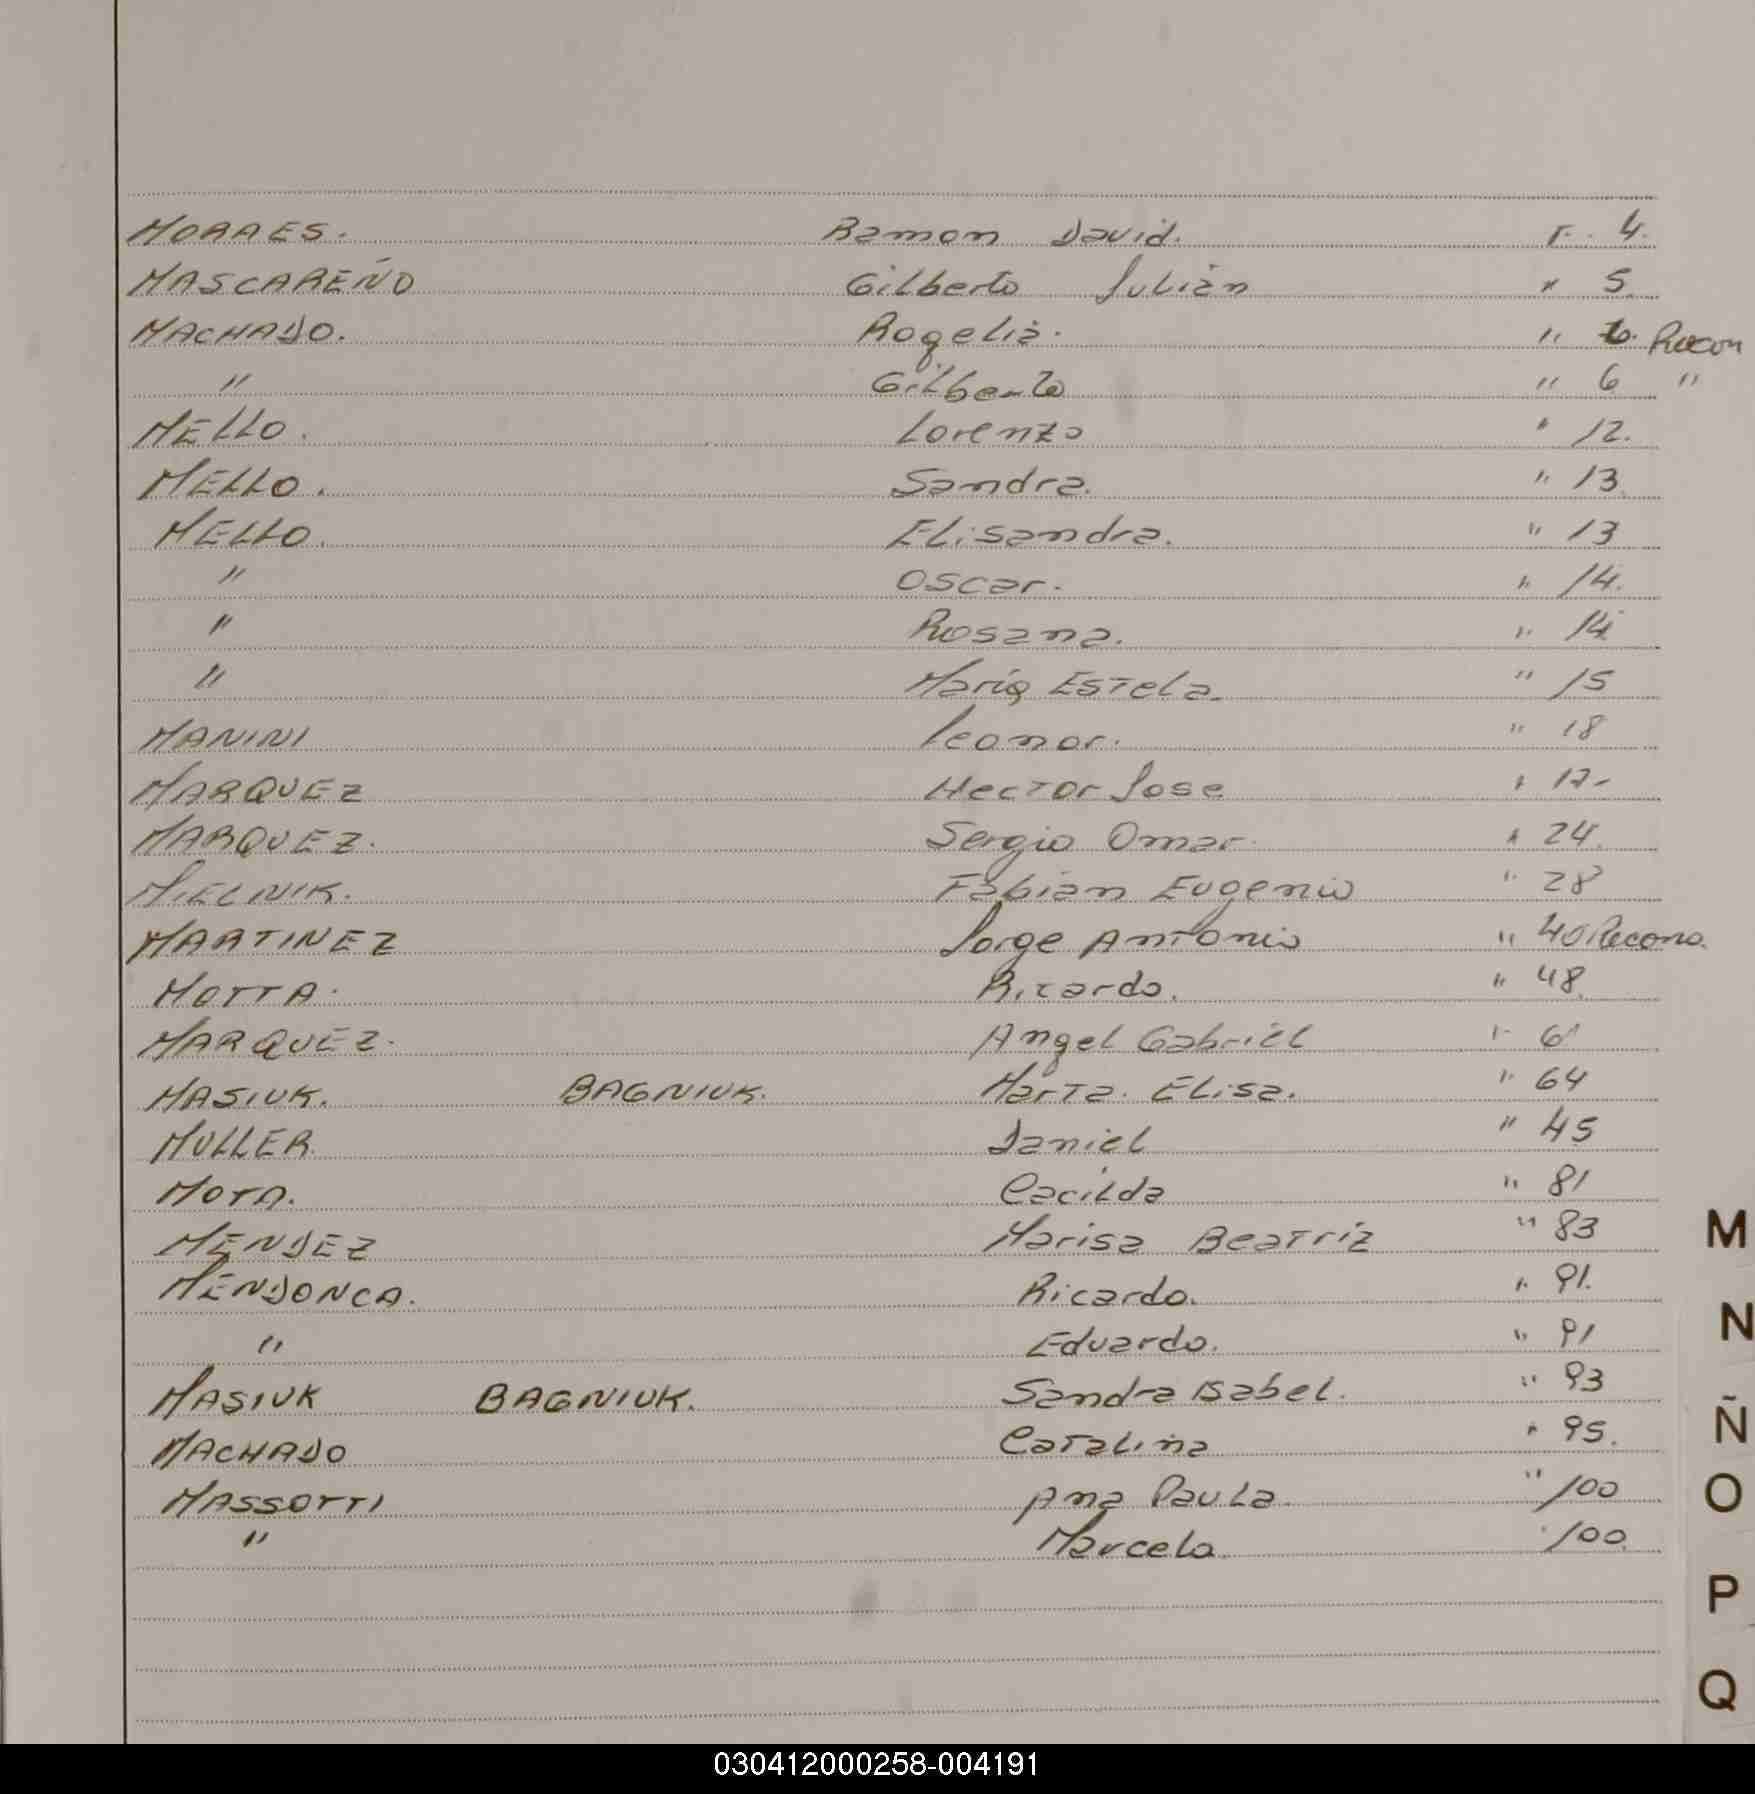 MORAES. Ramon David. F. 4.
MASCAREÑO Gilberto Julián " 5.
MACHADO. Rogelia. " 6. Recon
" Gilberto " 6 "
MELLO. Lorenzo " 12.
MELLO. Sandra. " 13.
MELLO. Elisandra. " 13
" Oscar. " 14.
" Rosana. " 14
" Maria Estela. " 15
MANINI Leonor. " 18
MARQUEZ Hector Jose " 17-
MARQUEZ. Sergio Omar. " 24.
MIELNIK. Fabian Eugenio " 28
MARTINEZ Jorge Antonio " 40 Recono.
MOTTA. Ricardo. " 48.
MARQUEZ. Angel Gabriel "
MASIUK. BAGNIUK. Marta. Elisa. " 64
MULLER. Daniel " 45
MOTA. Cacilda " 81
MENDEZ Marisa Beatriz " 83
MENDONCA. Ricardo. " 91.
" Eduardo. " 91
MASIUK BAGNIUK. Sandra Isabel. " 93
MACHADO Catalina " 95.
MASSOTTI Ana Paula. " 100
" Marcela. " 100.
M
N
Ñ
O
P
Q
030412000258-004191